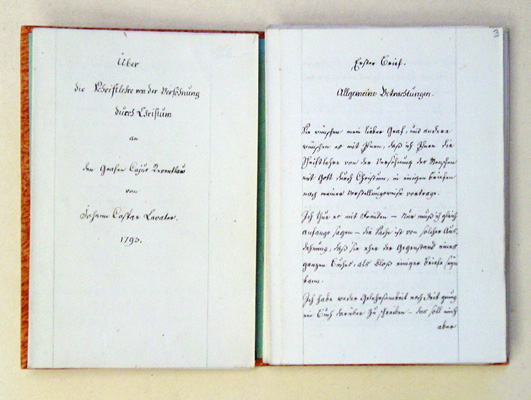 Über
die Schriftlehre von der Versöhnung
durch Christum
an
den Grafen Cajus
von
Johann Caspar Lavater.
1793.
3
Erster Brief.
Allgemeine Betrachtungen.
Sie wünschen mein lieber Graf, und andere
wünschen es mit Ihnen, daß ich Ihnen die
Schriftlehre von der Versöhnung der Menschen
mit Gott durch Christum, in einigen Briefen
nach meiner Vorstellungsweise vortrage.
Ich thue es mit Freuden – Nur muß ich gleich
anfangs sagen – die Sache ist von solcher Aus-
dehnung, daß sie eher der Gegenstand eines
ganzen Buches, als bloß einiger Briefe seyn
kann.
Ich habe weder Gelehrsamkeit noch Zeit genug
ein Buch darüber zu schreiben – das soll mich
aber